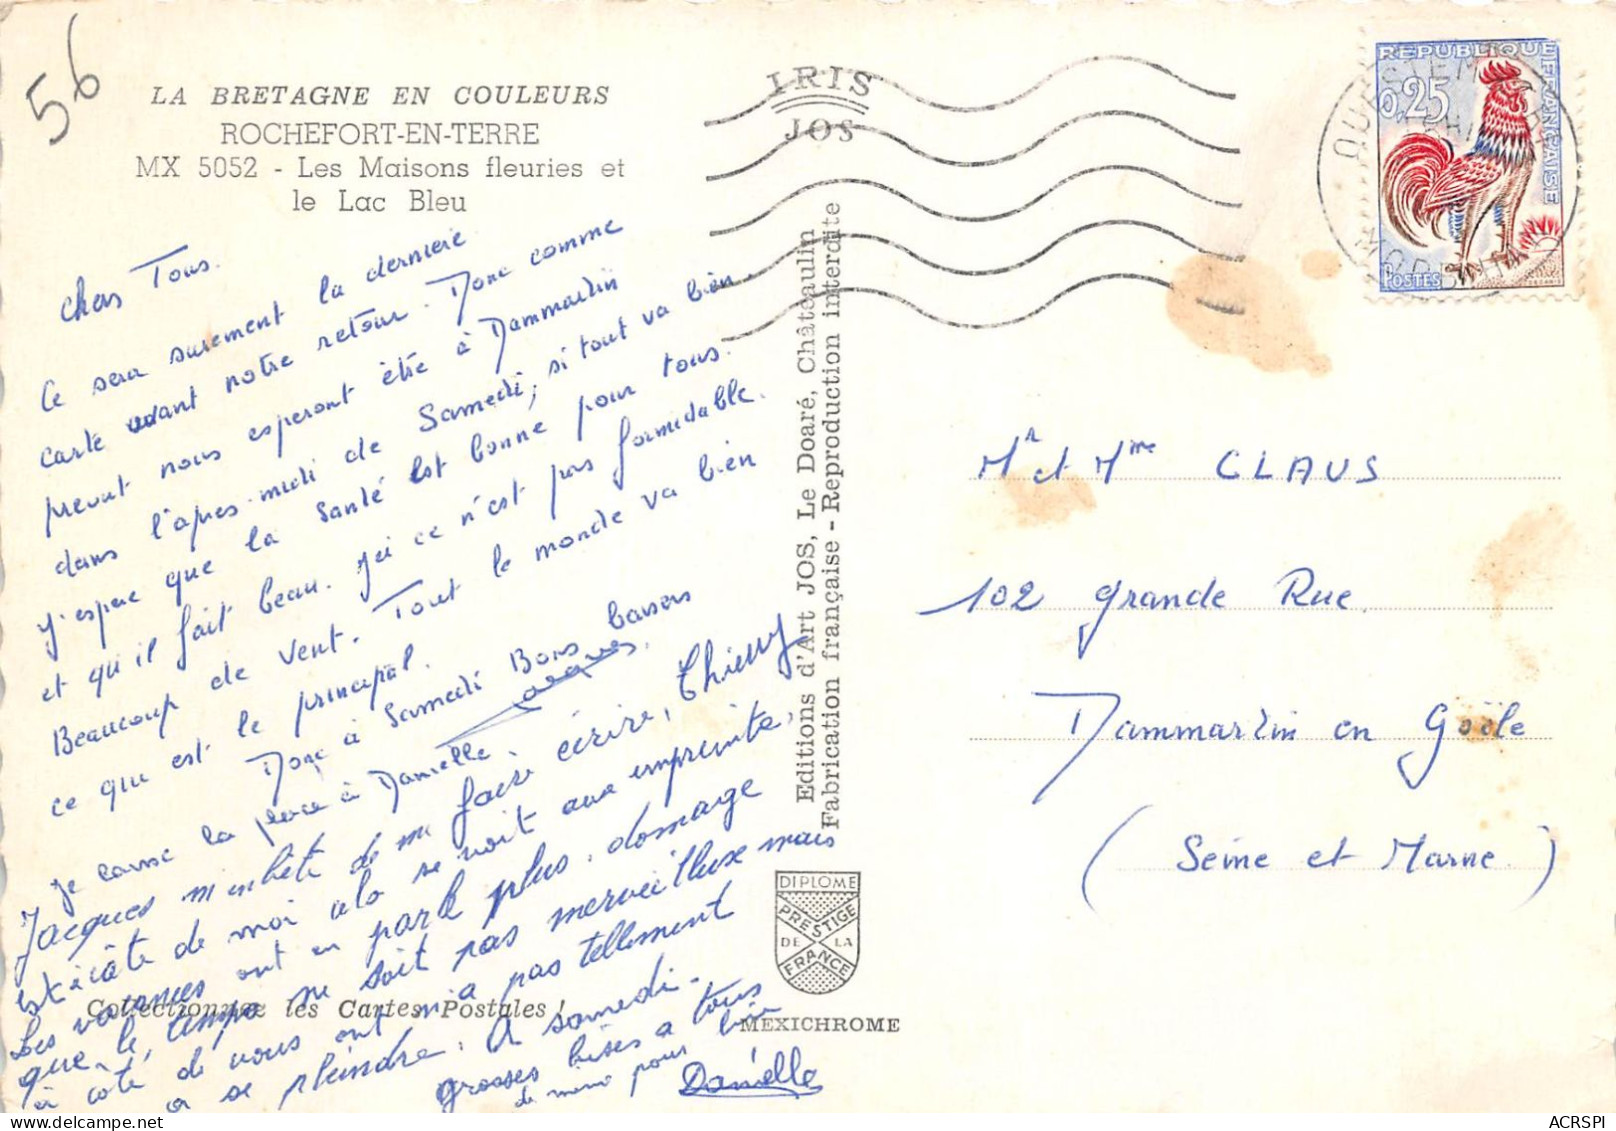 56
LA BRETAGNE EN COULEURS
ROCHEFORT-EN-TERRE
MX 5052 - Les Maisons fleuries et
le Lac Bleu
IRIS
JOS
REPUBLIQUE FRANCAISE
0,25
POSTES
QUESTEMBERT
MORBIHAN
chers Tous.
Ce sera surement la derniere
carte avant notre retour. Donc comme
prevut nous esperont être à Dammartin
dans l'apres-midi de Samedi, si tout va bien.
J'espere que la Santé est bonne pour tous.
et qu'il fait beau. Ici ce n'est pas formidable.
Beaucoup de vent. Tout le monde va bien
ce que est le principal.
Donc à Samedi Bons baisers
Jacques.
je laisse la place à Danielle.
Jacques m'enbête de me faire écrire, Thierry
est à côté de moi
se voit aux empreinte,
Les vacances ont en parle plus, domage
que le temps ne soit pas merveilleux mais
à côté de vous ont n'a pas tellement
a se pleindre. A samedi.
grosses bises a tous
de nous pour
Danielle
Collectionnez les Cartes Postales !
Editions d'Art JOS, Le Doaré, Châteaulin
Fabrication française - Reproduction interdite
DIPLOME
PRESTIGE
DE LA
FRANCE
MEXICHROME
Mr et Mme CLAUS
102 grande Rue.
Dammartin en Goële
(Seine et Marne)
ACRSPI